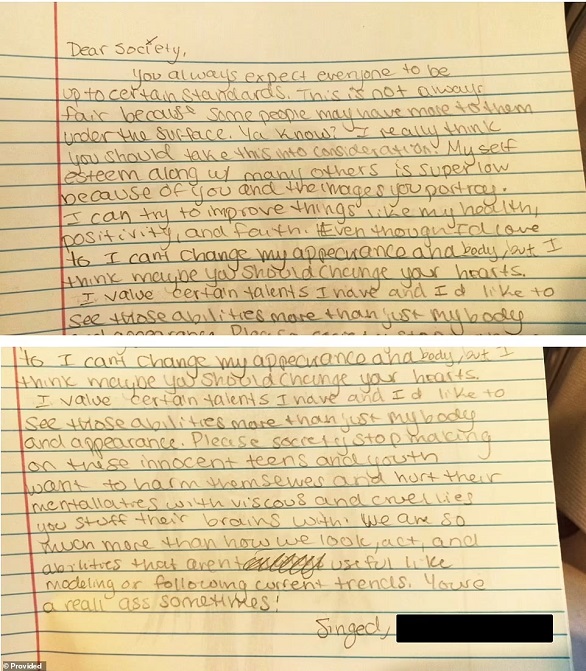 Dear Society,
You always expect everyone to be
up to certain standards. This is not always
fair because some people may have more to them
under the surface. Ya know? I really think
you should take this into consideration. My self
esteem along w/ many others is super low
because of you and the images you portray.
I can try to improve things like my health,
positivity, and faith. Even though I'd love
to I can't change my appearance and body, but I
think maybe ya should change your hearts.
I value certain talents I have and I'd like to
see those abilities more than just my body
and appearance. Please
to I can't change my appearance and body, but I
think maybe ya should change your hearts.
I value certain talents I have and I'd like to
see those abilities more than just my body
and appearance. Please society stop making
on these innocent teens and youth
want to harm themselves and hurt their
mentallaties with viscous and cruel lies
you stuff their brains with. We are so
much more than how we look, act, and
abilities that arent useful like
modeling or following current trends. You're
a reall ass sometimes!
Singed,
Provided